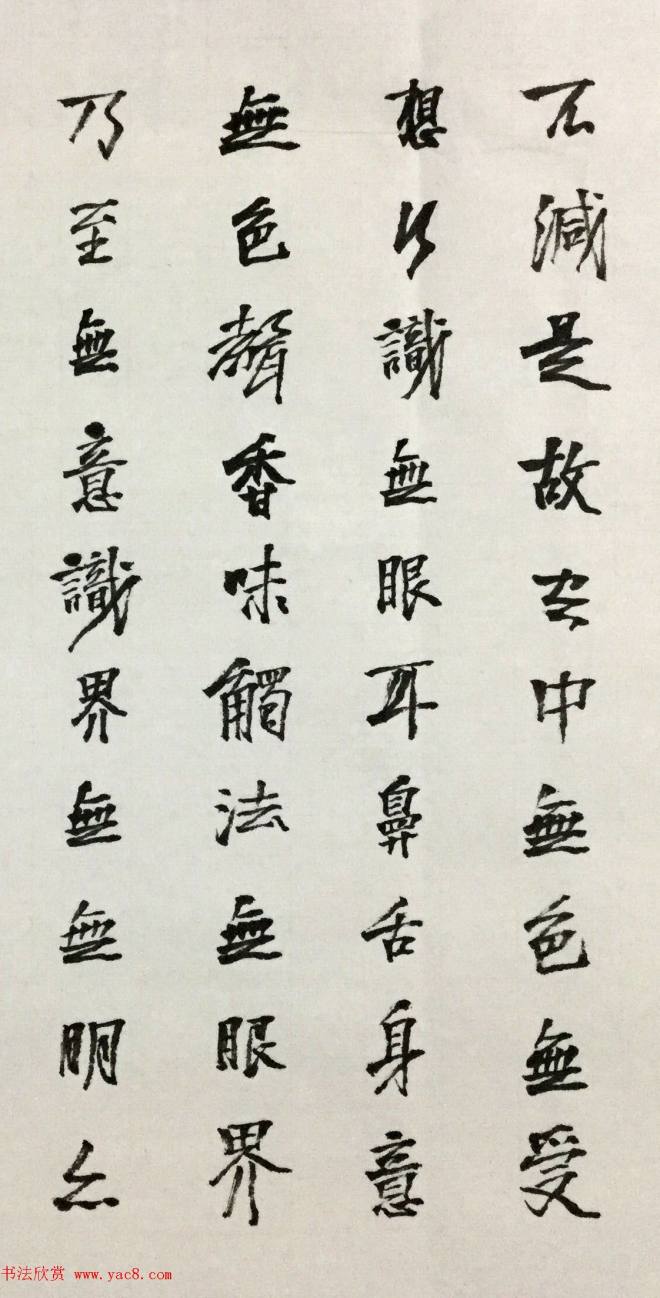 不減是故空中無色無受
想行識無眼耳鼻舌身意
無色聲香味觸法無眼界
乃至無意識界無無明亦
书法欣赏 www.yac8.com